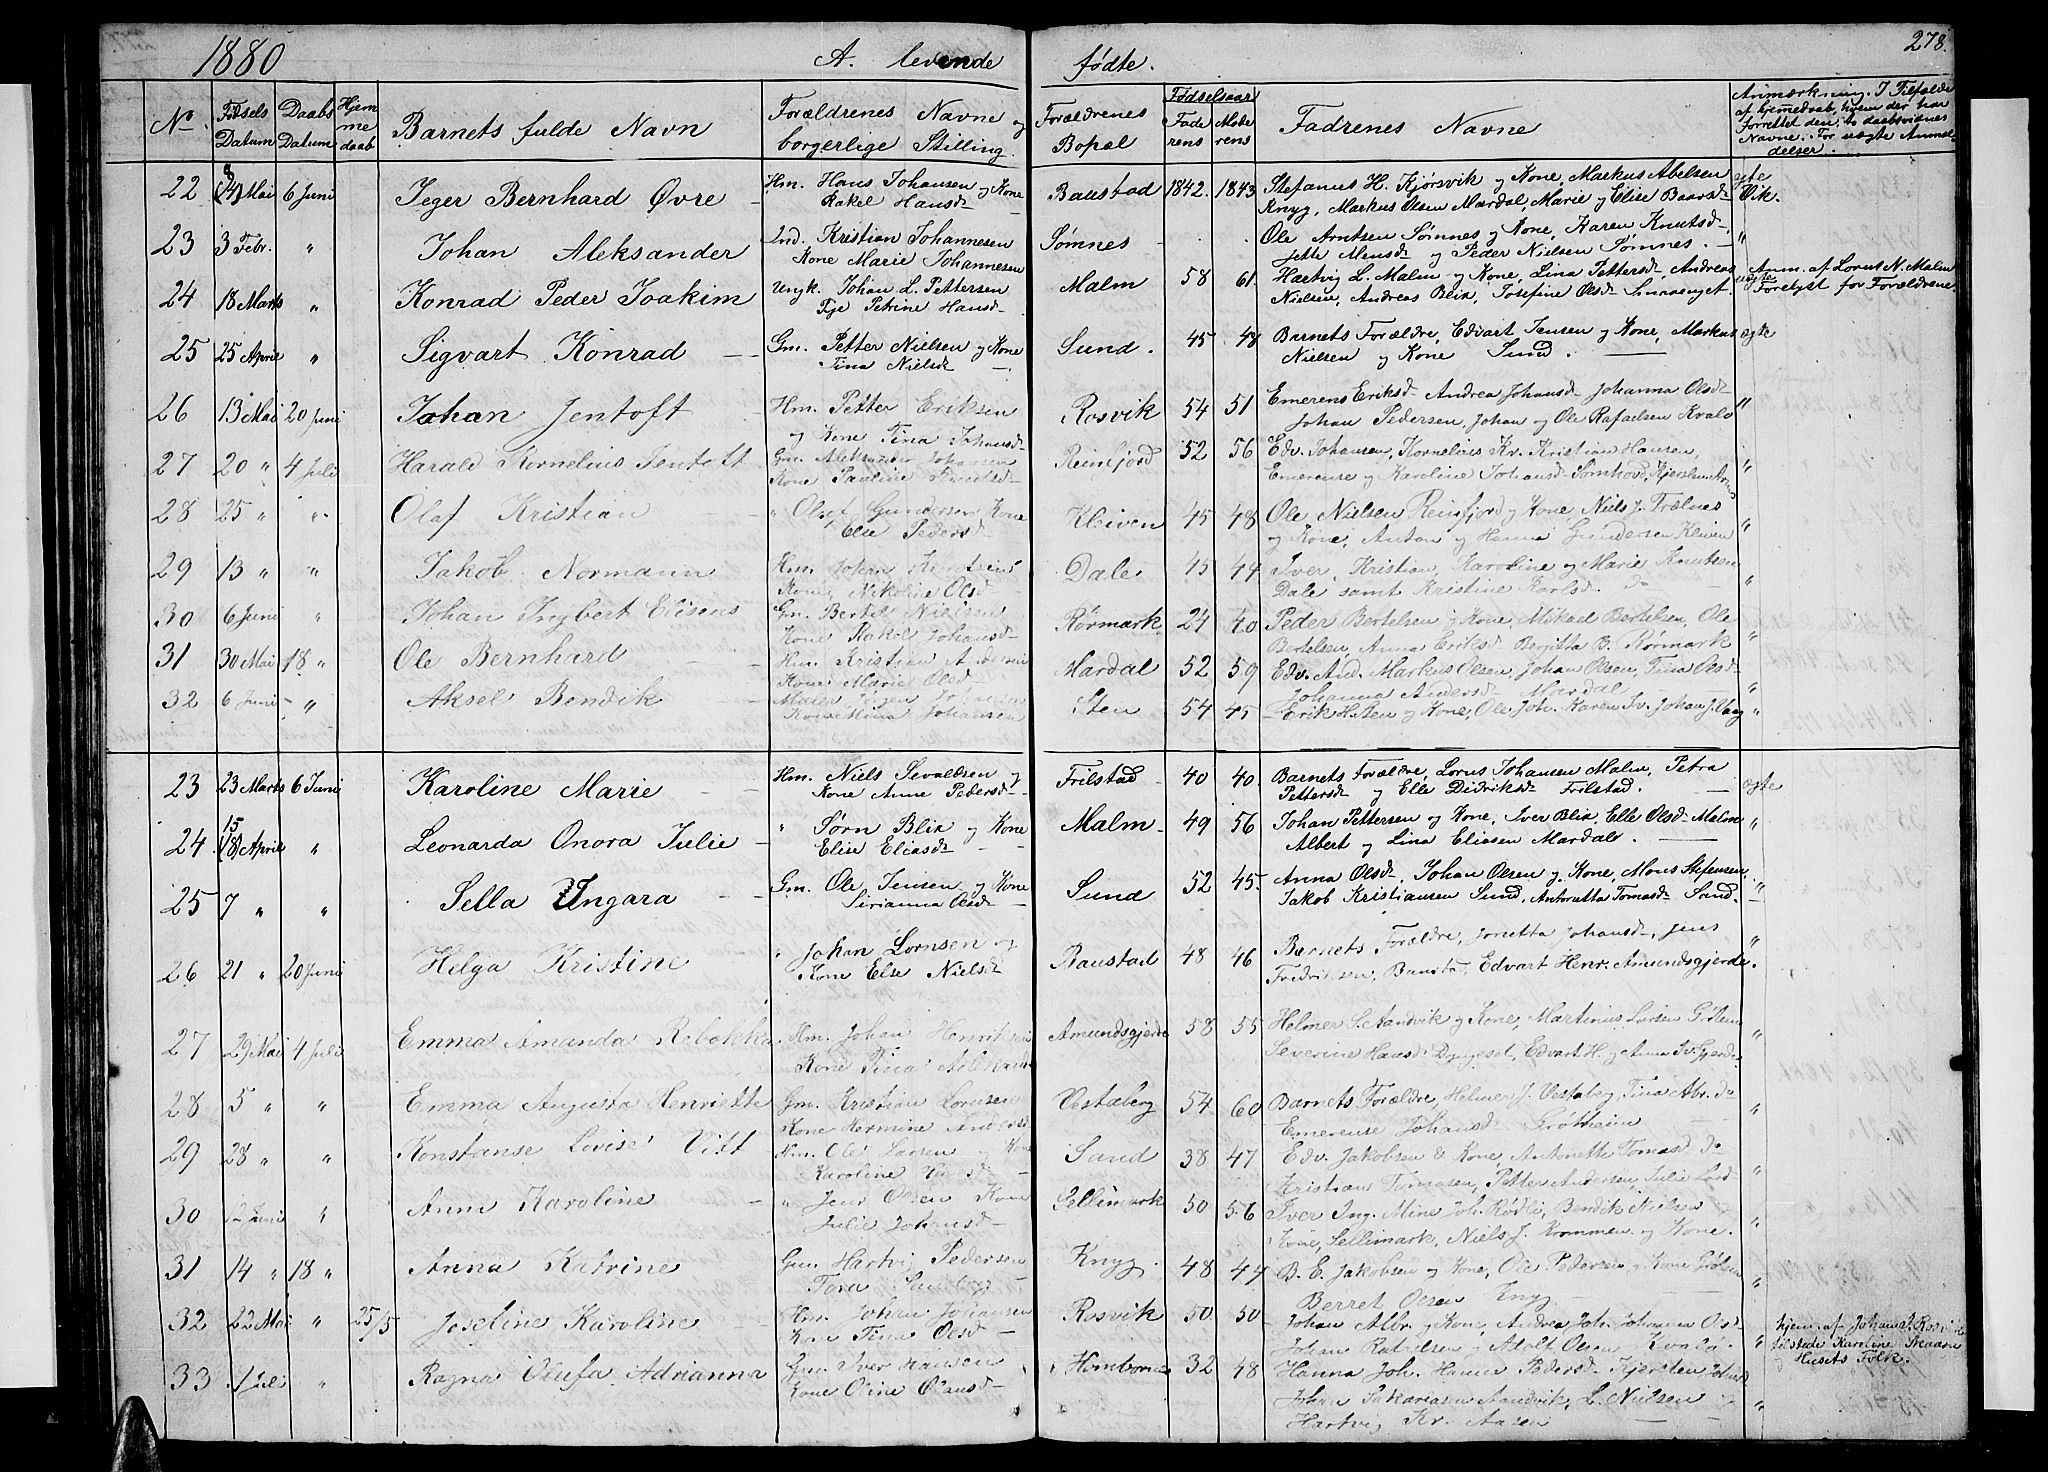 1880 A. levende fødte. 278.
No. Fødsels Datum Daabs Datum Hjemmedaab Barnets fulde Navn Forældrenes Navne og borgerlige Stilling. Forældrenes Bopæl Fødselsaar Faderens Moderens Fadrenes Navne Anmærkning. I Tilfælde af hjemmedaab, hvem der har forrettet den, to daabsvidnes Navne. For uægte Anmeldelser.
22 8 (4) Mai 6 Juni Jeger Bernhard Øvre Hm. Hans Johansen og Kone Baustad 1842. 1843 Stefanus H. Kjørsvik og Kone, Markus Abelsen ægte
Rakel Hansd. Knyg, Markus Olsen Mardal, Marie og Elise Baarsd. Vik.
23 3 Febr. " Johan Aleksander Ind. Kristian Johannesen Sømnes Ole Arntsen Sømnes og Kone, Karen Knutsd. "
Kone Marie Johannesen Jette Monsd. og Peder Nielsen Sømnes.
24 18 Marts " Konrad Peder Joakim Ungk. Johan L. Pettersen Malm 58 61 Hartvig L. Malm og Kone, Lina Pettersd. Andreas uægte Anm. af Lorns N. Malm
Pige Petrine Hansd. Nielsen, Andreas Blix, Josefine Olsd. Forelyst for Forældrene.
25 25 April " Sigvart Konrad Gm. Petter Nielsen og Kone Sund. 45 48 Barnets Forældre, Edvart Jensen og Kone, Markus ægte
Tina Nielsd. Nielsen og Kone Sund.
26 13 Mai 20 Juni Johan Jentoft Hm. Petter Eriksen Rosvik 54 51 Emerens Eriksd. Andrea Johansd. Johanna Olsd. "
og Kone Tina Johansd. Johan Pedersen, Johan og Ole Rafaelsen Kvalø
27 20 " 4 Juli Harald Kornelius Jentoft Gm. Aleksander Johansen Reinfjord 52 56 Edv. Johansen, Kornelius Kr. Kristian Hansen, "
Kone Pauline Knutsd. Emerense og Karoline Johansd.
28 25 " " Olaf Kristian " Oluf Gundersen Kone Kleiven 45 48 Ole Nielsen Reinfjord og Kone Niels J. Trælnes "
Elie Pedersd. og Kone, Anton og Hanna Gundersen Kleiven
29 13 " " Jakob Normann Hm. Johan Knutsen Dale 45 44 Iver, Kristian, Karoline og Marie Knutsen "
Kone Nikoline Olsd. Dale samt Kristine Karlsd. do
30 6 Juni " Johan Ingbert Elisius Gm. Bertel Nielsen Rørmark 24 40 Peder Bertelsen og Kone, Mikael Bertelsen, Ole "
Kone Rakel Johansd. Bertelsen, Anna Eriksd. Berjitta B. Rørmark
31 30 Mai 18 " Ole Bernhard Hm. Kristian Andersen Mardal 52 59 Edv. And. Markus Olsen, Johan Olsen, Tina Olsd. "
Kone Marie Olsd. Johanna Andersd. Mardal
32 6 Juni " Aksel Bendik Sten 54 45 Erik H. Sten og Kone, Ole Joh. Karen Iv. Johan "
Johansen
23 23 Marts 6 Juni Karoline Marie Hm. Niels Sevaldsen og Frilstad 40 40 Barnets Forældre, Lorns Johansen Malm, Petra ægte
Kone Anne Pedersd. Pettersd. og Elle Didriksd. Frilstad.
24 15 (18) April " Leonarda Onora Julie " Sørn Blix og Kone Malm 49 56 Johan Pettersen og Kone, Iver Blix, Elle Olsd. Malm "
Elise Eliasd. Albert og Lina Eliasen Mardal.
25 7 " " Sella Ungara Gm. Ole Jensen og Kone Sund 52 45 Anna Olsd. Johan Olsen og Kone, Mons Stefensen "
Sirianna Olsd. Jakob Kristiansen Sund, Antonetta Tomasd. Sand.
26 21 " 20 Juni Helga Kristine " Johan Lornsen og Baustad 48 46 Barnets Forældre, Jonetta Johansd. Jens "
Kone Else Nielsd. Fredriksen, Baustad, Edvart Henr. Amundsgjerde.
27 29 Mai 4 Juli Emma Amanda Rebekka Hm. Johan Henriksen Amundsgjerde 58 55 Helmer S. Sandvik og Kone, Martinus Larsen
Kone Tina Severine Hansd. Dypeset, Edvart H. og Anna Iv. Gjerde
28 5 " " Emma Augusta Henriette Gm. Kristian Lornsen Vestaberg 54 60 Barnets Forældre, Helmer J. Vestaberg, Tina Abr. do "
Kone Hermine Andersd. Emerense Johansd. Grøttheim
29 28 " " Konstanse Lovise Vitt Hm. Ole Larsen og Kone Sand 38 47 Edv. Jakobsen & Kone, Antonette Tomasd. do "
Karoline Hansd. Kristian Tomasen, Petter Andersen, Julie
30 12 Juni " Anna Karoline " Jens Olsen Kone Sellimark 50 56 Iver Ing. Mine Joh. Rødli, Bendik Nielsen "
Julie Johansd. Kone, Sellimark, Niels J. Krommen og Kone.
31 14 " 18 " Anna Katrine Gm. Hartvig Pedersen Knyg 48 44 B. E. Jakobsen og Kone, Ole Pedersen og Kone "
Tora Berret Olsen Knyg
32 22 Mai " 25/5 Joseline Karoline Hm. Johan Johansen Rosvik 50 50 Johan Albr. og Kone, Andrea Joh. Johanna Olsd. " hjem. af Johan A. Rosvik
Kone Tina Olsd. Johan Rafaelsen og Adolf Olsen Kvalø tilstede Karoline Skaarn
33 1 Juli " Ragna Olufa Adrianna Gm. Iver Hansen 32 48 Hanna Joh. Hanna Pedersd. Kjersten Husets Folk.
Kone Oline Olausd. Johan Sakariasen Sandvik, L. Nielsen "
Hartvig Kr. Aasen